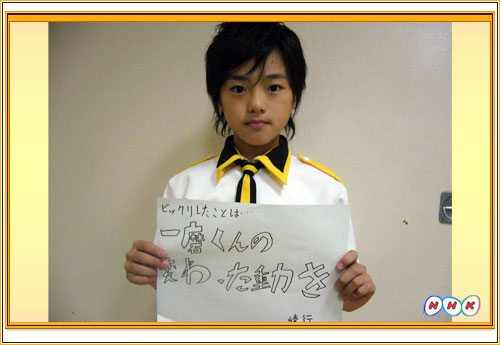 ビックリしたことは…
一磨くんの
変わった動き
綾行
NHK